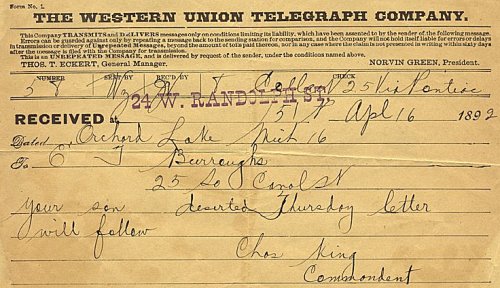 Form No. 1.
THE WESTERN UNION TELEGRAPH COMPANY.
This Company TRANSMITS and DELIVERS messages only on conditions limiting its liability, which have been assented to by the sender of the following message.
Errors can be guarded against only by repeating a message back to the sending station for comparison, and the Company will not hold itself liable for errors or delays
in transmission or delivery of Unrepeated Messages, beyond the amount of tolls paid thereon, nor in any case where the claim is not presented in writing within sixty days
after the message is filed with the Company for transmission.
This is an UNREPEATED MESSAGE, and is delivered by request of the sender, under the conditions named above.
THOS. T. ECKERT, General Manager. NORVIN GREEN, President.
NUMBER SENT BY REC'D BY CHECK
58 25 Via Pontiac
24 W. RANDOLPH ST.
RECEIVED at 151 Apl 16 1892
Dated Orchard Lake Mich 16
To Burroughs
25 So Canal St
Your son deserted Thursday letter
will follow
Chas King
Commondent